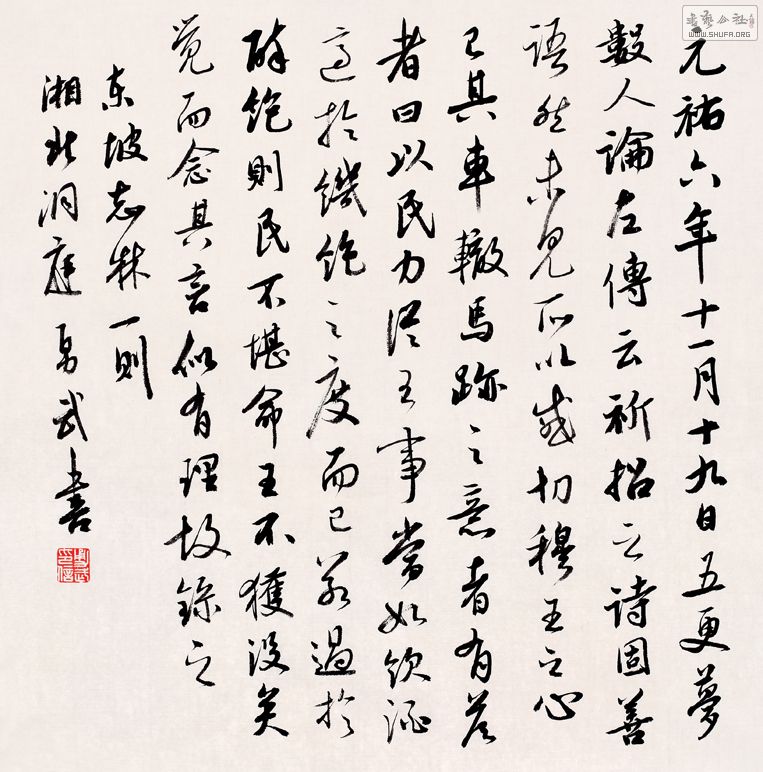 元祐六年十一月十九日五更夢
數人論左傳云祈招之詩固善
語然未見所以感切穆王之心
已其車轍馬跡之意者有答
者曰以民力從王事當如飲酒
適於饑飽之度而已若過於
醉飽則民不堪命王不獲沒矣
覺而念其言似有理故錄之
東坡志林一則
湘北洞庭武書
書藝公社
WWW.SHUFA.ORG